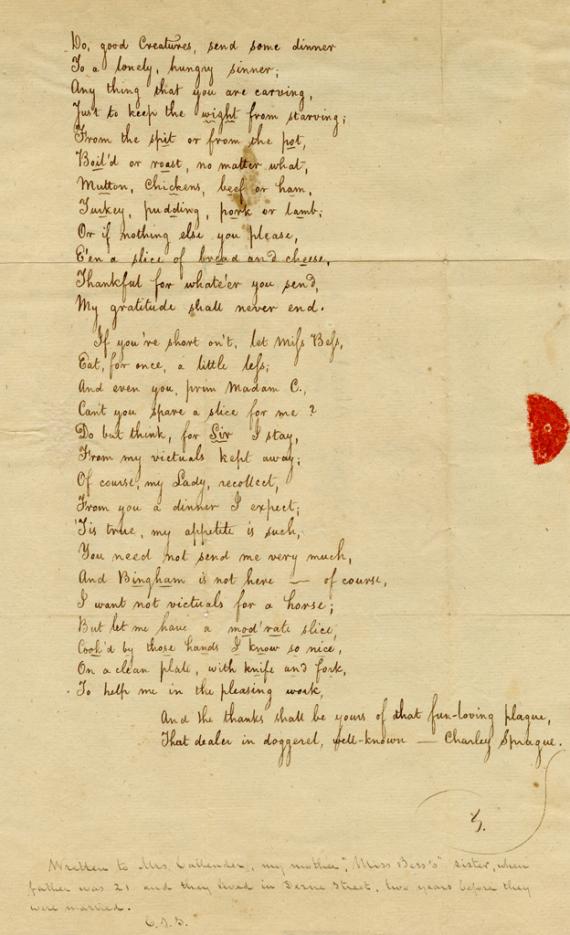 Do, good Creatures, send some dinner
To a lonely, hungry sinner;
Any thing that you are carving,
Just to keep the wight from starving;
From the spit or from the pot,
Boil'd or roast, no matter what,
Mutton, Chickens, beef or ham,
Turkey, pudding, pork or lamb;
Or if nothing else you please,
E'en a slice of bread and cheese,
Thankful for whate'er you send,
My gratitude shall never end.
If you're short on't, let Miſs Beſs,
Eat, for once, a little leſs;
And even you, prim Madam C.,
Can't you spare a slice for me ?
Do but think, for Sir I stay,
From my victuals kept away;
Of course, my Lady, recollect,
From you a dinner I expect;
'Tis true, my appetite is such,
You need not send me very much,
And Bingham is not here — of course,
I want not victuals for a horse;
But let me have a mod'rate slice,
Cook'd by those hands I know so nice,
On a clean plate, with knife and fork,
To help me in the pleasing work,
And the thanks shall be yours of that fun-loving plague,
That dealer in doggerel, well-known — Charley Sprague.
S.
Written to Mrs. Callender, my mother, "Miss Bess's" sister, when
father was 21 and they lived in Derne Street, two years before they
were married.